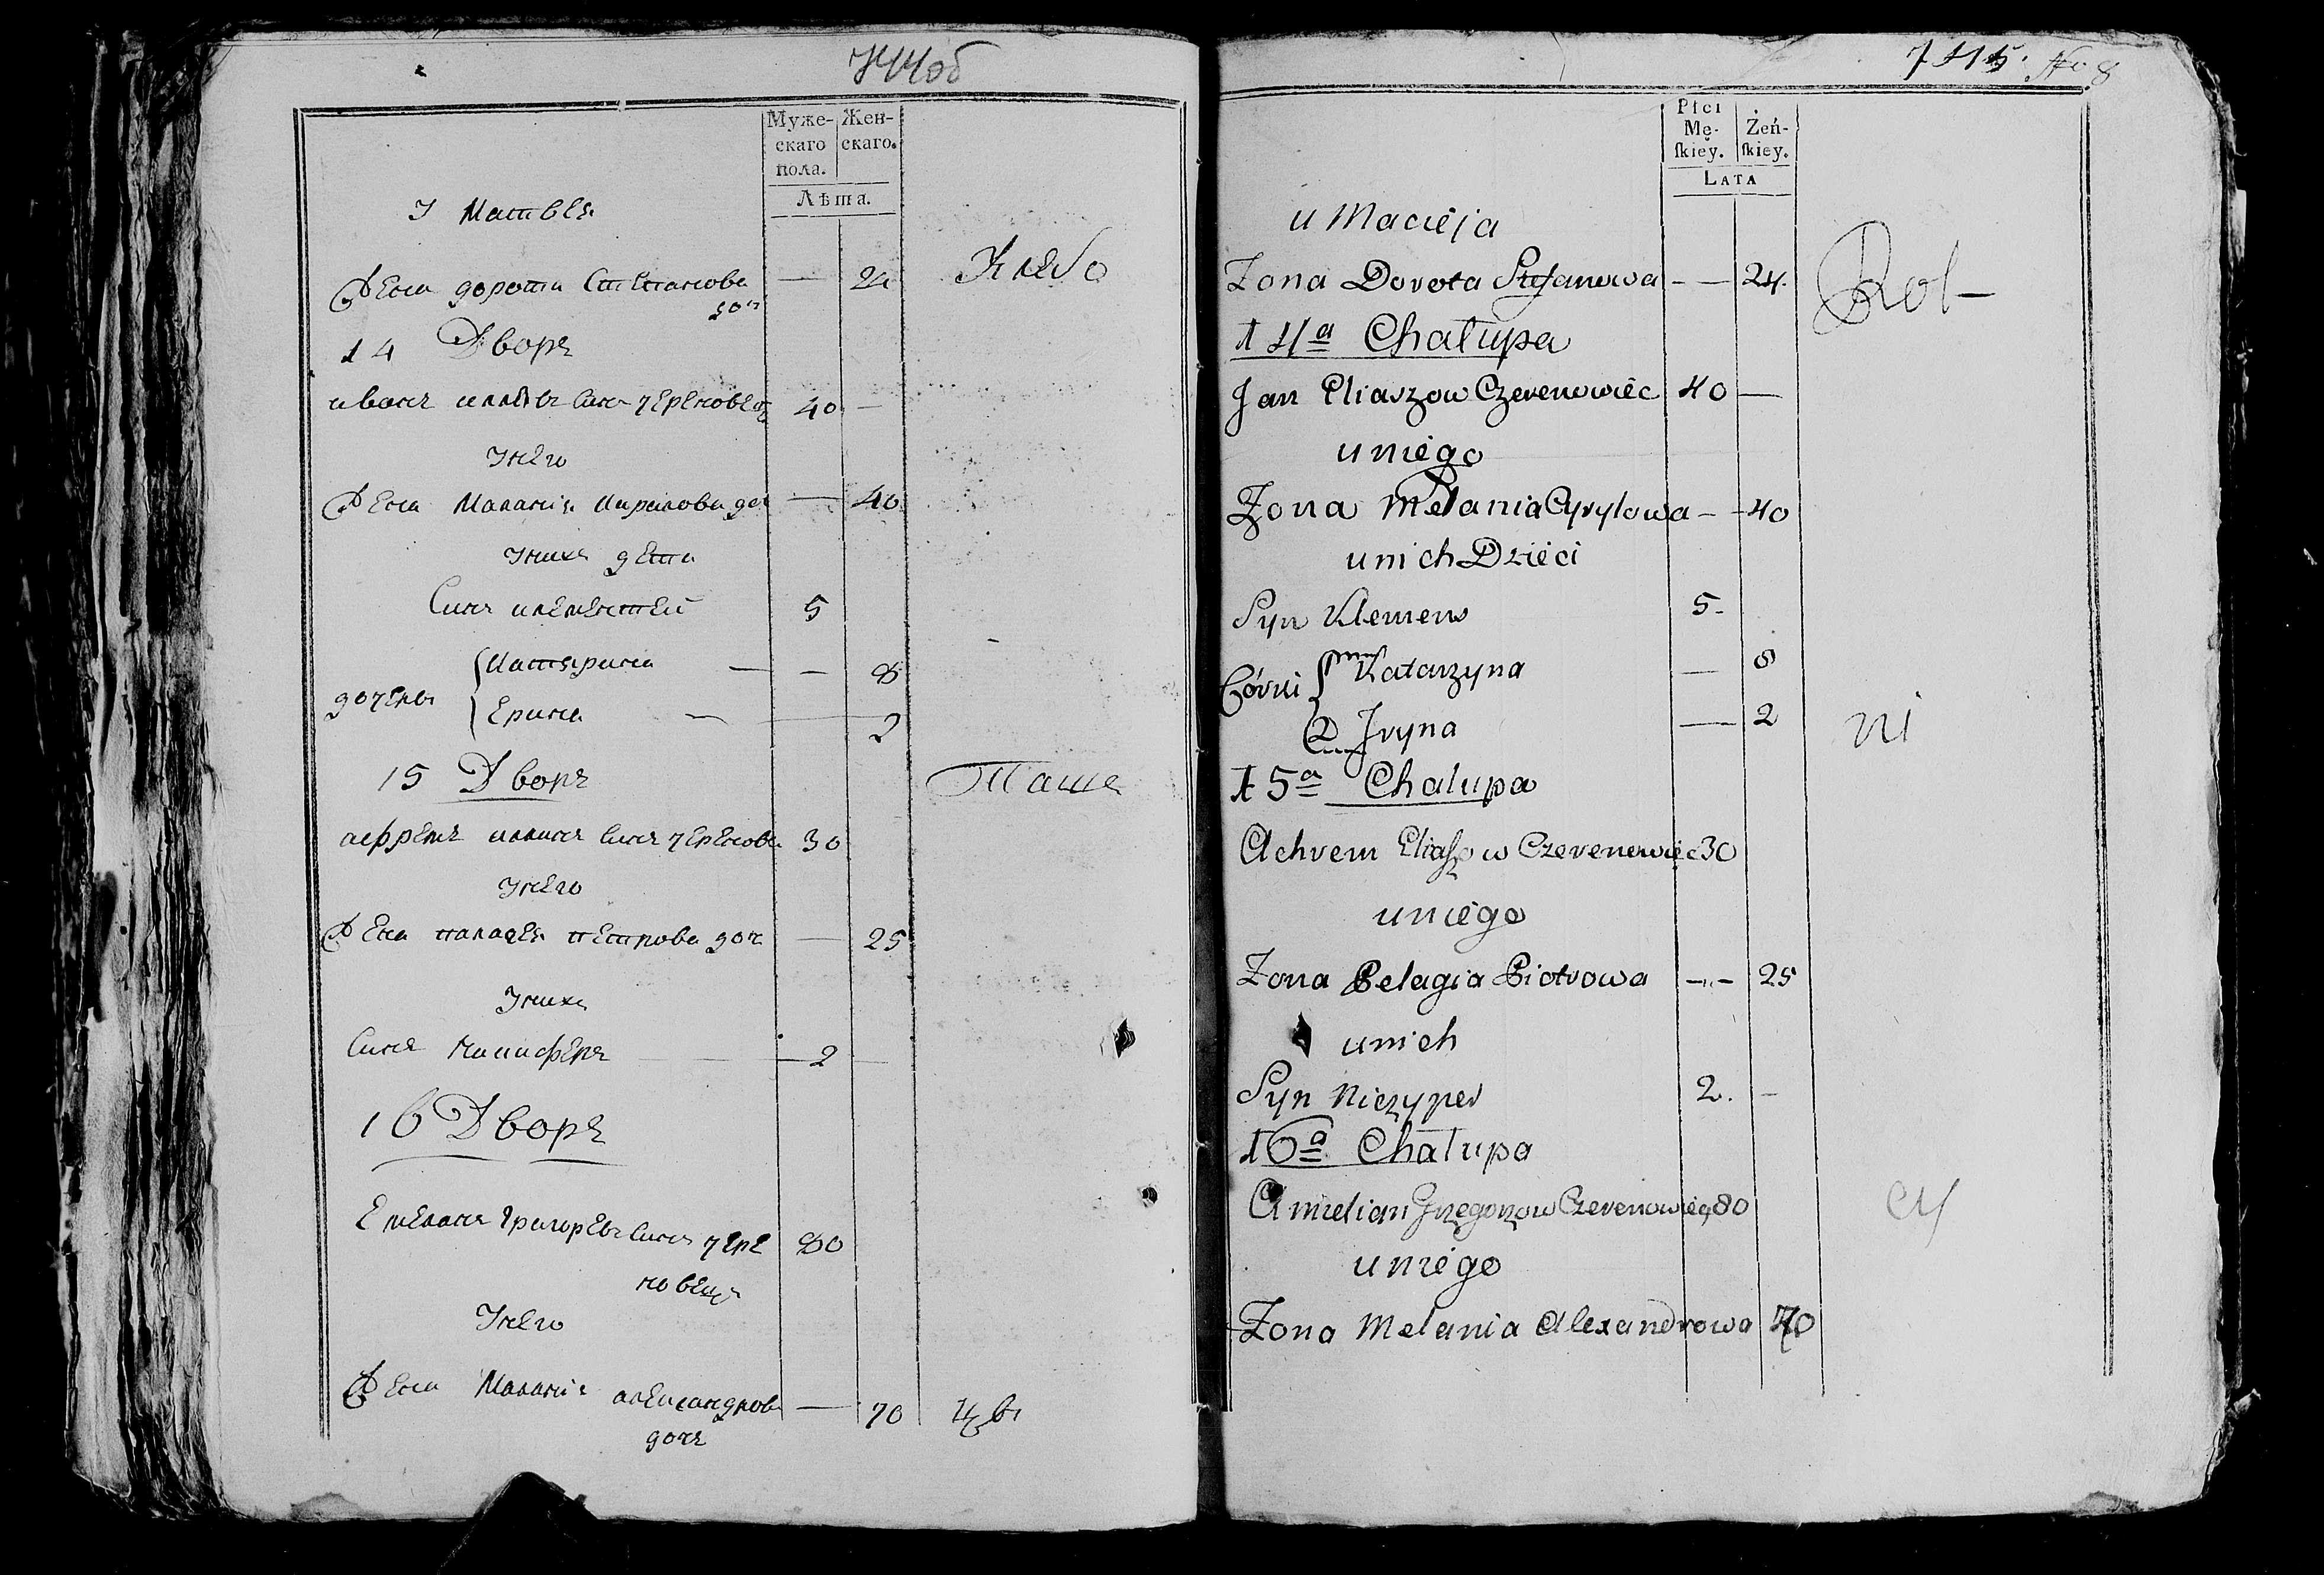 744об
Муже-
скаго
пола.
Жен-
скаго.
Лѣта.
У Матвея
Жена дорота Степанова
доч
24
14 Дворъ
иванъ илиевъ Синъ череновец
40
Унего
Жена Маланія Кирилова доч
40
Унихъ дети
Синъ клементей
5
дочеры
Катярина
8
Ерина
2
15 Дворъ
аефремъ илинъ Синъ черенове
30
Унего
Жена палагея петрова доч
25
Унихъ
Синъ Ничиферъ
2
16 Дворъ
Емелянъ Григоревъ Синъ чере
новецъ
80
Унего
Жена Маланія александров
дочь
70
745. No 8
Płci
Mę-
ſkiey.
Żeń-
ſkiey.
LATA
u Macieja
Zona Dorota Stefanowa 24.
14a Chałupa
Jan Eliaszow Czerenowiec 40
u niego
Zona Melania Cyryłowa 40
u nich Dzieci
Syn Klemens 5
Córki
Katarzyna 8
2 Jryna 2
15a Chałupa
Achrem Eliaszow Czerenowiec 30
u niego
Zona Pelagia Piotrowa 25
u nich
Syn Niczyper 2.
16a Chałupa
Amielian Grzegorzow Czerenowiec 80
u niego
Zona Melania Alexandrowa 70